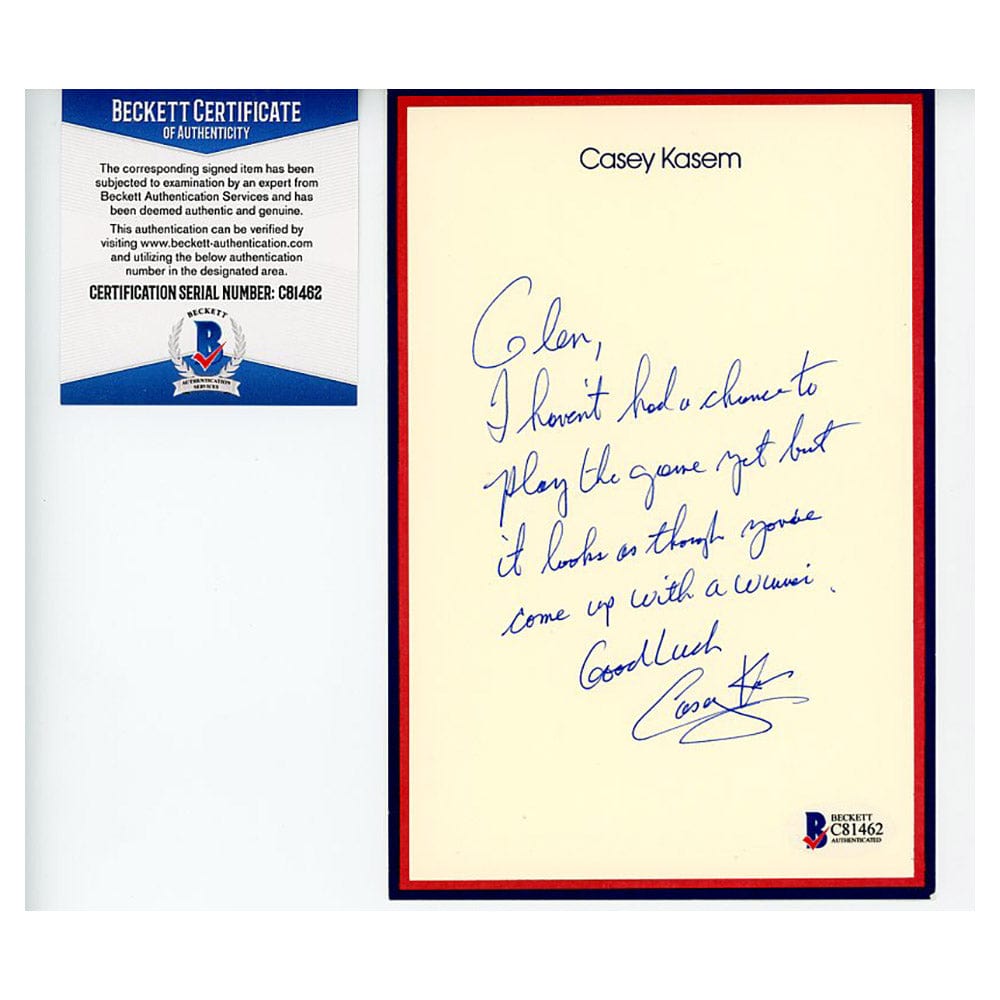 BECKETT CERTIFICATE
OF AUTHENTICITY
The corresponding signed item has been
subjected to examination by an expert from
Beckett Authentication Services and has
been deemed authentic and genuine.
This authentication can be verified by
visiting www.beckett-authentication.com
and utilizing the below authentication
number in the designated area.
CERTIFICATION SERIAL NUMBER: C81462
BECKETT
B
AUTHENTICATION
SERVICES
Casey Kasem
Glen,
I haven't had a chance to
play the game yet but
it looks as though you've
come up with a winner.
Good Luck
Casey Kasem
B
BECKETT
C81462
AUTHENTICATED